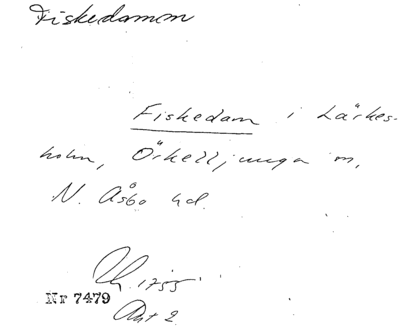 Fiskedamm
Fiskedam i Lärkes-
holm, Örkelljunga sn,
N. Åsbo hd.
1755
Nr 7479
Akt 2